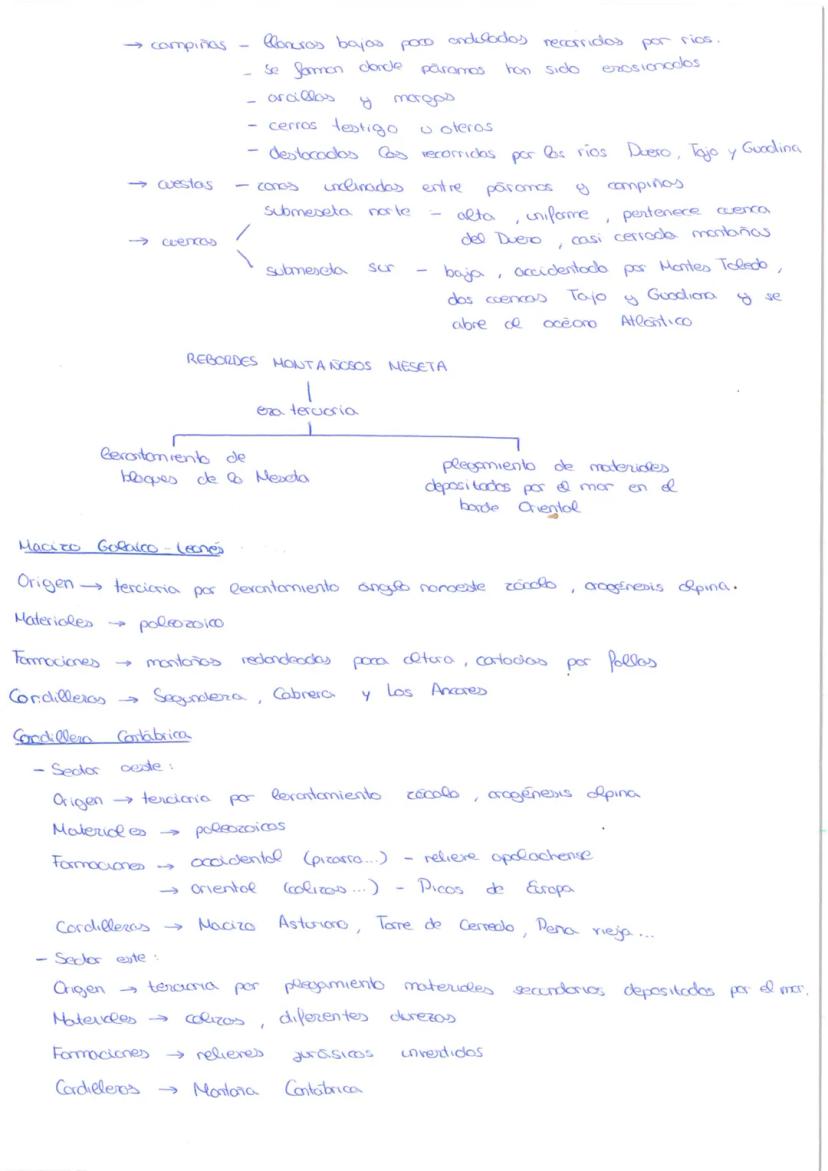 → campiñas - llanuras bajas poco onduladas recorridas por rios.
- se forman donde páramos han sido erosionados
- arcillas y margas
- cerros testigo u oteros
- destacadas las recorridas por los ríos Duero, Tajo y Guadina
→ cuestas - zonas inclinadas entre páramos y campiñas
submeseta norte - alta, uniforme, pertenece cuenca
→ cuencas
del Duero, casi cerrada montañas
submeseta sur - baja, accidentado por Montes Toledo,
dos cuencas Tajo y Guadiana y se
abre al océano Atlántico
REBORDES MONTAÑOSOS MESETA
era terciaria
levantamiento de
bloques de la Meseta
plegamiento de materiales
depositados por el mar en el
borde Oriental
Macizo Galaico-Leonés
Origen → terciaria por levantamiento ángulo noroeste zócalo, orogénesis alpina.
Materiales → paleozoico
Formaciones → montañas redondeadas poca altura, cortadas por fallas
Cordilleras → Segundera, Cabrera y Los Ancares
Cordillera Cantábrica
- Sector oeste:
Origen → terciaria por levantamiento zócalo, orogénesis alpina
Materiales → paleozoicos
Formaciones → occidental (pizarra...) - relieve apalachense
→ oriental (calizas...) - Picos de Europa
Cordilleras → Macizo Asturiano, Torre de Cerredo, Pena vieja...
- Sector este:
Origen → terciaria por plegamiento materiales secundarios depositados por el mar.
Materiales → calizas, diferentes durezas
Formaciones → relieves jurásicos invertidos
Cordilleras → Montaña Cantábrica